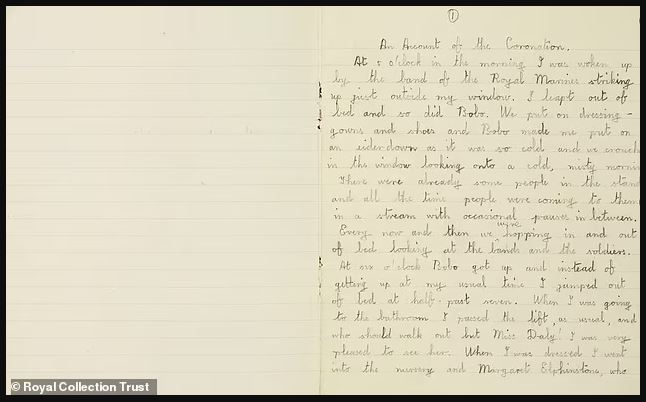 1
An Account of the Coronation.
At 5 o'clock in the morning I was woken up
by the band of the Royal Marines striking
up just outside my window. I leapt out of
bed and so did Bobo. We put on dressing-
gowns and shoes and Bobo made me put on
an eiderdown as it was so cold and we crouch
in the window looking onto a cold, misty mornin
There were already some people in the stand
and all the time people were coming to them
in a stream with occasional pauses in between.
Every now and then we were hopping in and out
of bed looking at the bands and the soldiers.
At six o'clock Bobo got up and instead of
getting up at my usual time I jumped out
of bed at half-past seven. When I was going
to the bathroom I passed the lift, as usual, and
who should walk out but Miss Daly! I was very
pleased to see her. When I was dressed I went
into the nursery and Margaret Elphinstone, who
© Royal Collection Trust